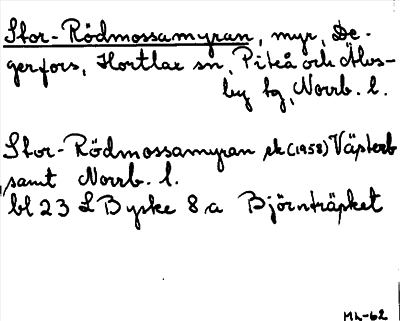 Stor-Rödmossamyran, myr, De-
gerfors, Hortlax sn, Piteå och Älvs-
by tg, Norrb. l.
Stor-Rödmossamyran ek (1958) Västerb
samt Norrb. l.
bl 23 L Byske 8 a Björnträsket
ML-62